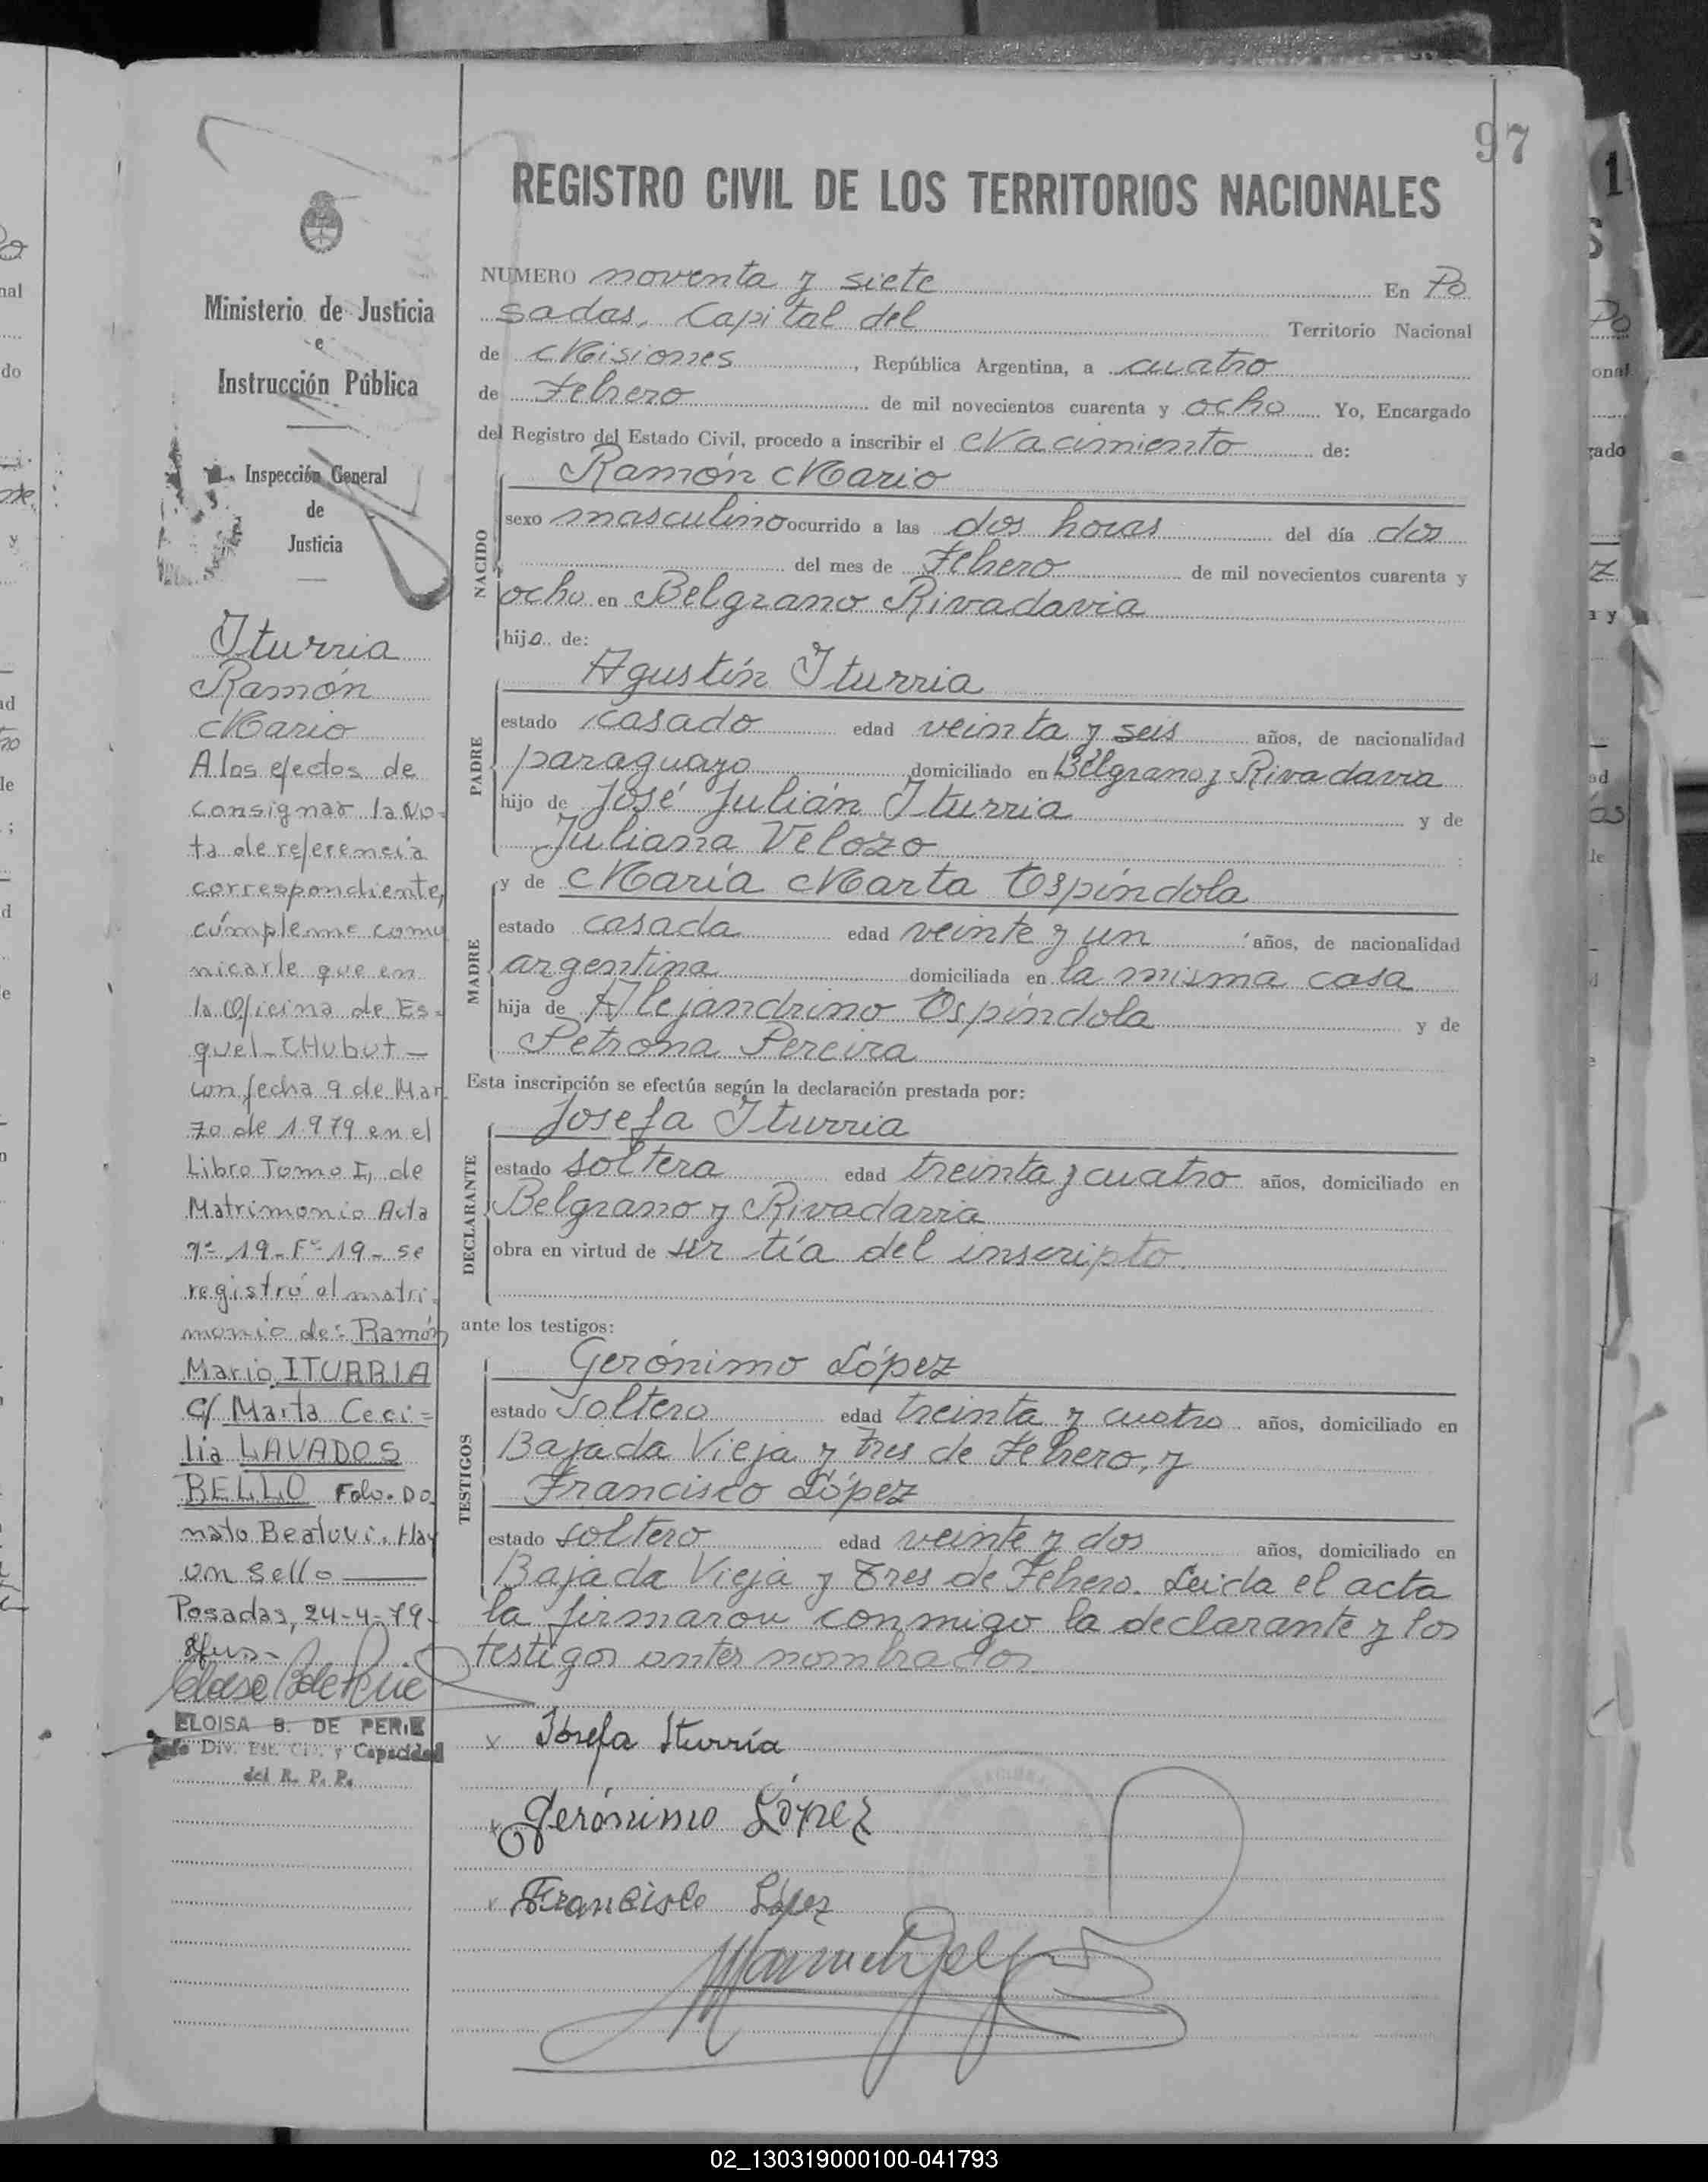 97
REGISTRO CIVIL DE LOS TERRITORIOS NACIONALES
Ministerio de Justicia
e
Instrucción Pública
Inspección General
de
Justicia
Iturria
Ramón
Mario
A los efectos de
consignar la No-
ta de referencia
correspondiente,
cúmpleme comu
nicarle que en
la Oficina de Es-
quel-CHubut-
con fecha 9 de Mar
zo de 1.979 en el
Libro Tomo I, de
Matrimonio Acta
nº 19-Fº 19- se
registró el matri-
monio de: Ramón
Mario ITURRIA
c/ Marta Ceci=
lia LAVADOS
BELLO Fdo. Do
nato Beatovi. Hay
un sello
Posadas, 24-4-79-
ELOISA B. DE PERIE
Jefe Div. Est. Civ. y Capacidad
del R. P. P.
NUMERO noventa y siete En Po
sadas, Capital del Territorio Nacional
de Misiones, República Argentina, a cuatro
de Febrero de mil novecientos cuarenta y ocho Yo, Encargado
del Registro del Estado Civil, procedo a inscribir el Nacimiento de:
Ramón Mario
NACIDO
sexo masculino ocurrido a las dos horas del día dos
del mes de Febrero de mil novecientos cuarenta y
ocho en Belgrano Rivadavia
hijo de:
Agustín Iturria
PADRE
estado casado edad veinta y seis años, de nacionalidad
paraguayo domiciliado en Belgrano y Rivadavia
hijo de José Julián Iturria y de
Juliana Velozo
y de María Marta Espíndola
MADRE
estado casada edad veinte y un años, de nacionalidad
argentina domiciliada en la misma casa
hija de Alejandrino Espíndola y de
Petrona Pereira
Esta inscripción se efectúa según la declaración prestada por:
Josefa Iturria
DECLARANTE
estado soltera edad treinta y cuatro años, domiciliado en
Belgrano y Rivadavia
obra en virtud de ser tía del inscripto.
ante los testigos:
Gerónimo López
TESTIGOS
estado soltero edad treinta y cuatro años, domiciliado en
Bajada Vieja y tres de Febrero, y
Francisco López
estado soltero edad veinte y dos años, domiciliado en
Bajada Vieja y Tres de Febrero. Leida el acta
la firmaron conmigo la declarante y los
testigos antes nombrados
x Josefa Iturria
x Gerónimo López
x Francisco López
02_130319000100-041793